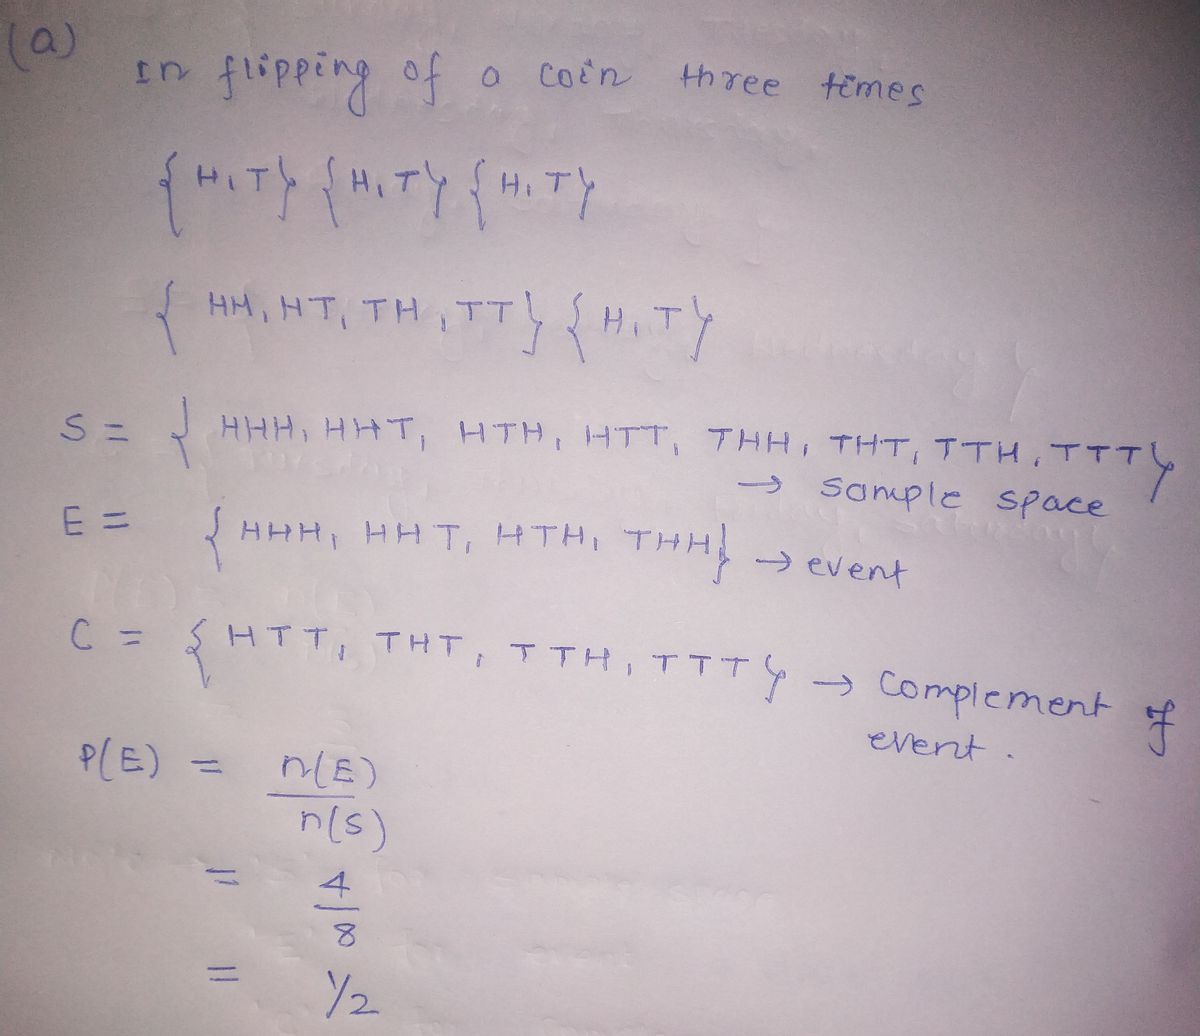 (a)
In flipping of a coin three times
{H,T} {H,T} {H,T}
{ HH, HT, TH, TT} {H,T}
S = { HHH, HHT, HTH, HTT, THH, THT, TTH, TTT}
→ sample space
E = { HHH, HHT, HTH, THH} → event
C = { HTT, THT, TTH, TTT} → Complement of
event.
P(E) = n(E)
n(S)
= 4
8
= 1/2